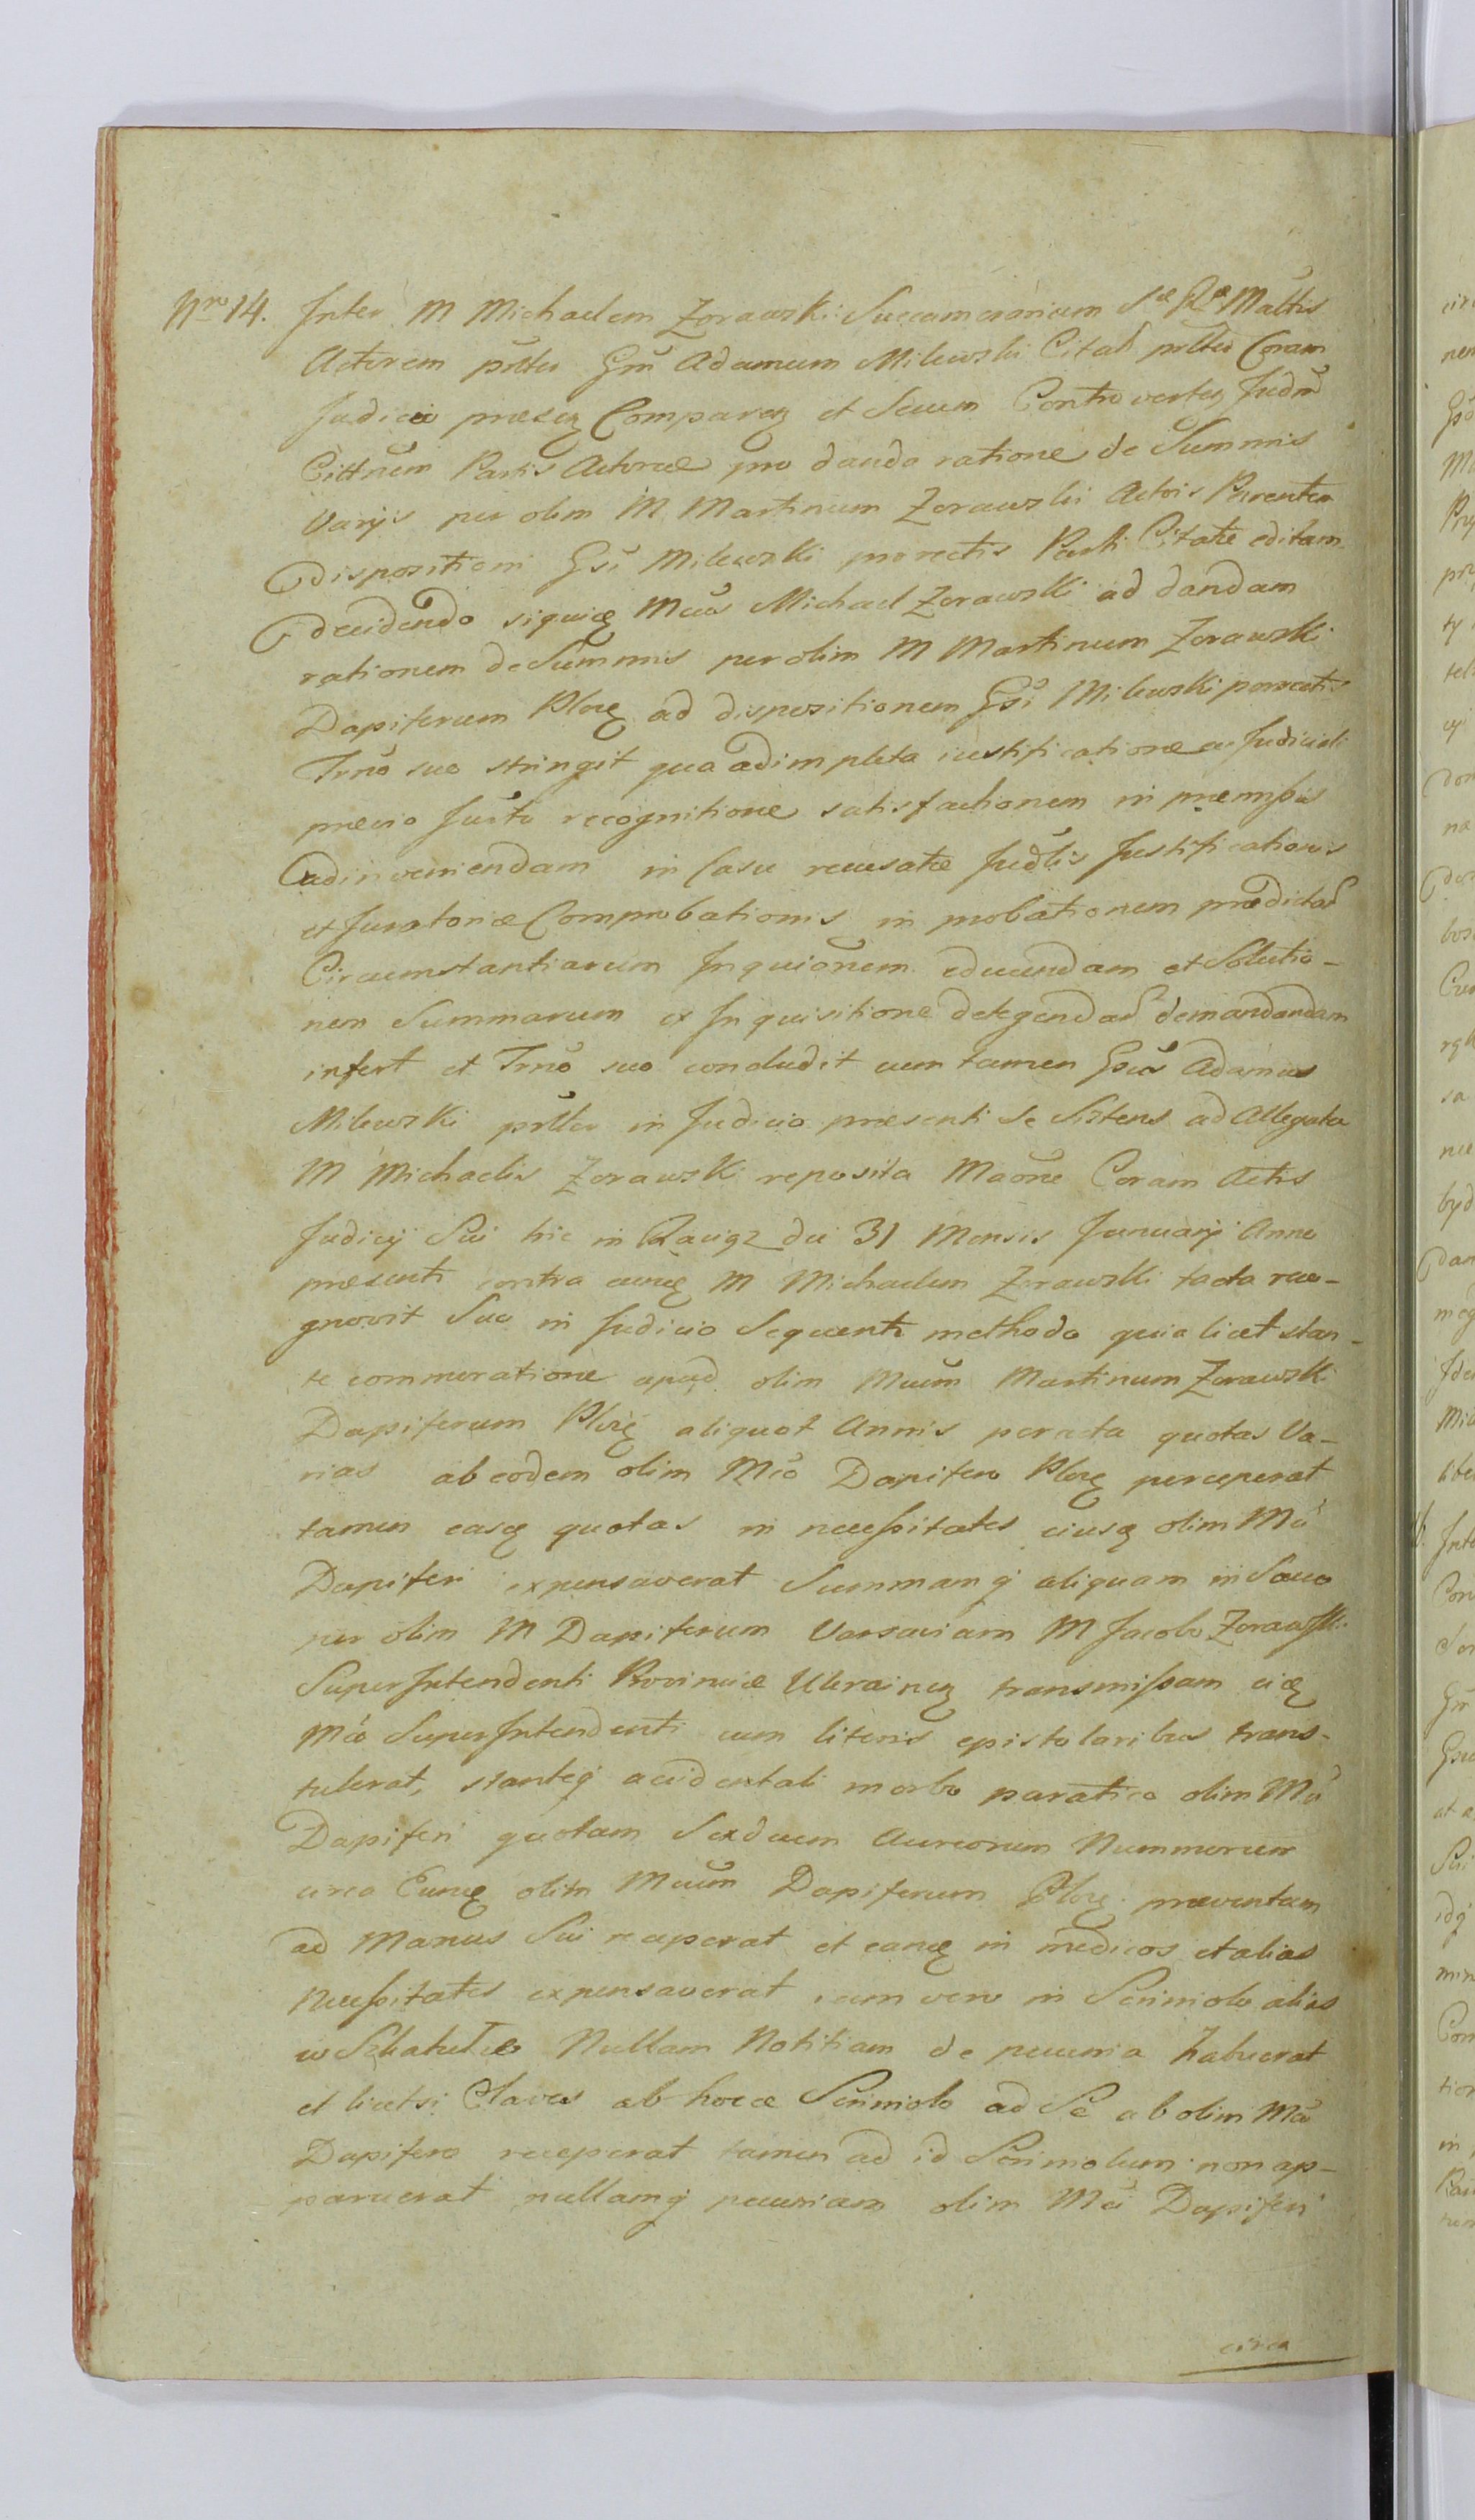 Nro 14. Inter M Michaelem Zorawski Succamerarium Sæ Ræ Mattis
Actorem psltr Gm̃ Adamum Milewski Citat psltr Coram
Judicio præsenq Comparenq et Secum Controvertenq Judm̃
Citt̃nem Partis Actoreæ pro danda ratione de Summis
Varijs per olim M Martinum Zorawski Actois Parentem
dispositioni Gsi Milewski porrectis Parti Citatæ editam
decidendo siquidē Mcus Michael Zorawski ad dandam
rationem de Summis per olim M Martinum Zorawski
Dapiferum Ploce ad dispositionem Gsi Milewski porrectis
Trno suo stringit qua adimpleta iustificatione ac Judiciali
prævio Jurto recognitione satisfactionem in præmissis
adinveniendam in Casu recusatæ Judlis Justificationis
et Juratoriæ Comprobationis in probationem prædictar
Circumstantiarum Inquionem educendam et Solutio-
nem Summarum ex Inquisitione detegendar demandandam
infert et Trno suo concludit cum tamen Gsus Adamus
Milewski psltr in Judicio præsenti se Sistens ad Allegata
M Michaelis Zorawski reposita Maone Coram Actis
Judicij Sui hic in die 31 Mensis Januarij Anno
præsenti contra eunq M Michaelem Zorawski facta reco-
gnovit Suo in Judicio Sequenti methodo quia licet stan-
te commoratione apud olim Mcum Martinum Zorawski
Dapiferum Ploce aliquot Annis peracta quotas Va-
rias ab eodem olim Mco Dapifero Ploce perceperat
tamen easq quotas in necessitates eiusq olim Mci
Dapiferi expensaverat Summamq aliquam in Sacco
per olim M Dapiferum Varsaviam M Jacobo Zorawski
SuperIntendenti Provinciæ Ukrainenq transmissam eiq
Mco SuperIntendenti cum literis epistolaribus trans-
tulerat, stanteq accidentali morbo olim Mci
Dapiferi quotam Sexdecim Aureorum Nummorum
circa Eunq olim Mcum Dapiferum Ploce præventam
ad Manus Sui receperat et eanq in medicos et alias
Necessitates expensaverat, cum vero in Scriniolo alias
w Szkatułce Nullam Notitiam de pecunia habuerat
et licetsi Claves ab hocce Scriniolo ad Se ab olim Mco
Dapifero receperat tamen ad id Scriniolum non ap-
paruerat nullamq pecuniam olim Mci Dapiferi
circa